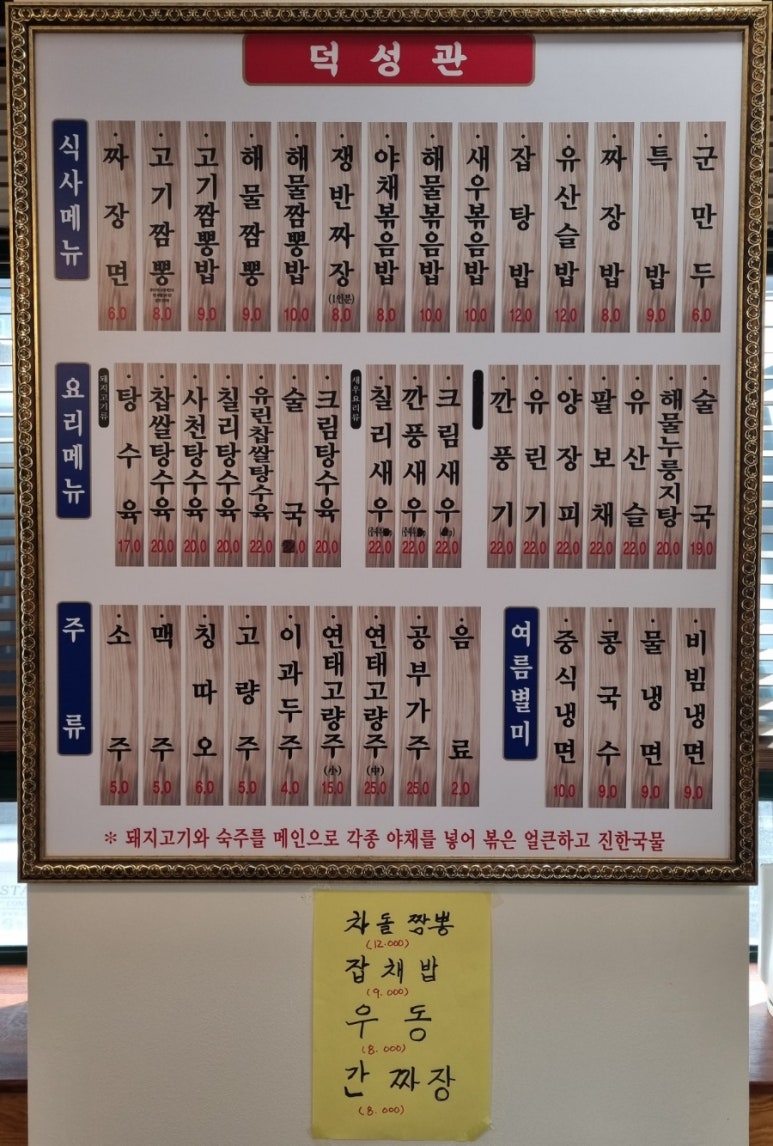 덕성관
식사메뉴
짜장면 6,0
고기짬뽕 8,0
고기짬뽕밥 9,0
해물짬뽕 9,0
해물짬뽕밥 10,0
쟁반짜장 (1인분) 8,0
야채볶음밥 8,0
해물볶음밥 10,0
새우볶음밥 10,0
잡탕밥 12,0
유산슬밥 12,0
짜장밥 8,0
특밥 9,0
군만두 6,0
요리메뉴
돼지고기류
탕수육 17,0
찹쌀탕수육 20,0
사천탕수육 20,0
칠리탕수육 20,0
유린찹쌀탕수육 22,0
술국
크림탕수육 20,0
새우요리류
칠리새우 22,0
깐풍새우 22,0
크림새우 22,0
깐풍기 22,0
유린기 22,0
양장피 22,0
팔보채 22,0
유산슬 22,0
해물누룽지탕 20,0
술국 19,0
주류
소주 5,0
맥주 5,0
칭따오 6,0
고량주 5,0
이과두주 4,0
연태고량주 (小) 15,0
연태고량주 (中) 25,0
공부가주 25,0
음료 2,0
여름별미
중식냉면 10,0
콩국수 9,0
물냉면 9,0
비빔냉면 9,0
※ 돼지고기와 숙주를 메인으로 각종 야채를 넣어 볶은 얼큰하고 진한국물
차돌짬뽕
(12.000)
잡채밥
(9.000)
우동
(8.000)
간짜장
(8.000)